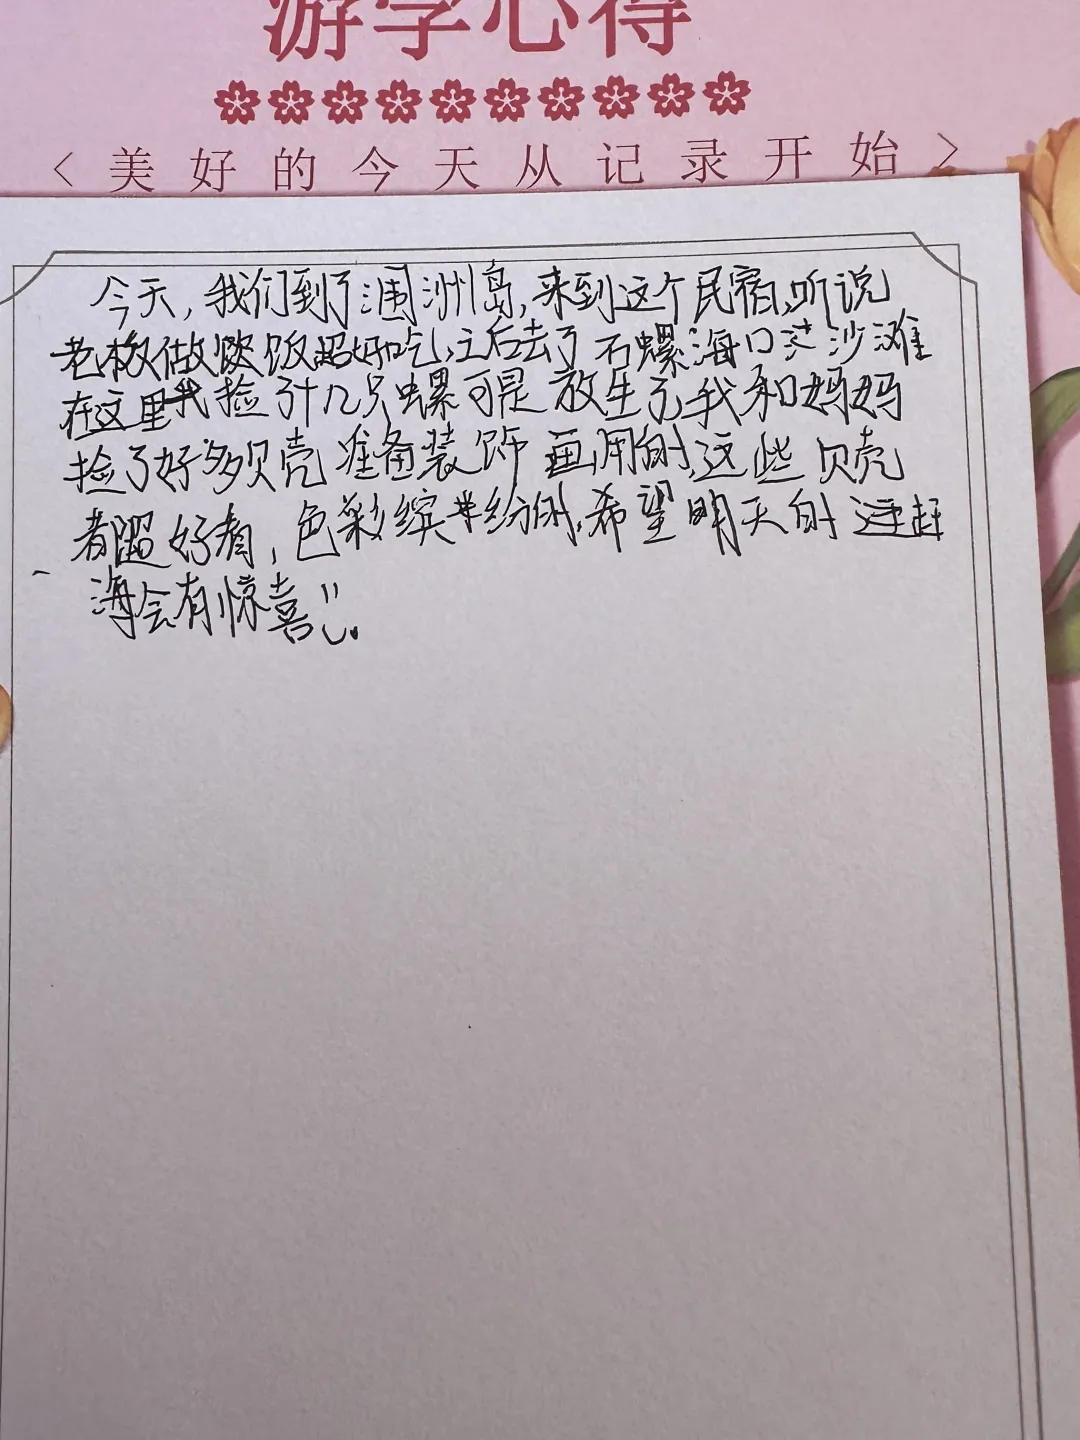 游学心得
<美好的今天从记录开始>
今天,我们到了涠洲岛,来到这个民宿,听说
老板做饭超好吃,之后去了石螺海口沙滩
在这里我捡了十几只螺可是放生了,我和妈妈
捡了好多贝壳准备装饰画用的,这些贝壳
都超好看,色彩缤纷的,希望明天的赶
海会有惊喜。